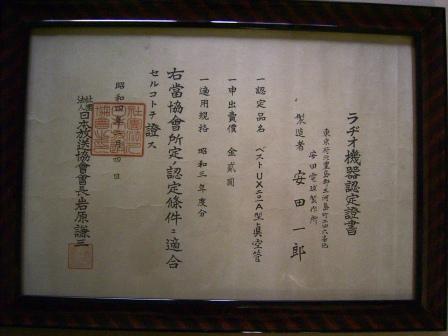 ラヂオ機器認定證書
東京府北豊島郡三河島町二四六番地
安田電球製作所
製造者 安田一郎
一認定品名 ベストUX二〇一A型眞空管
一申出賣價 金貳圓
一適用規格 昭和三年度分
右當協會所定ノ認定條件ニ適合
セルコトヲ證ス
昭和四年 月四日
社團法人日本放送協會會長岩原謙三